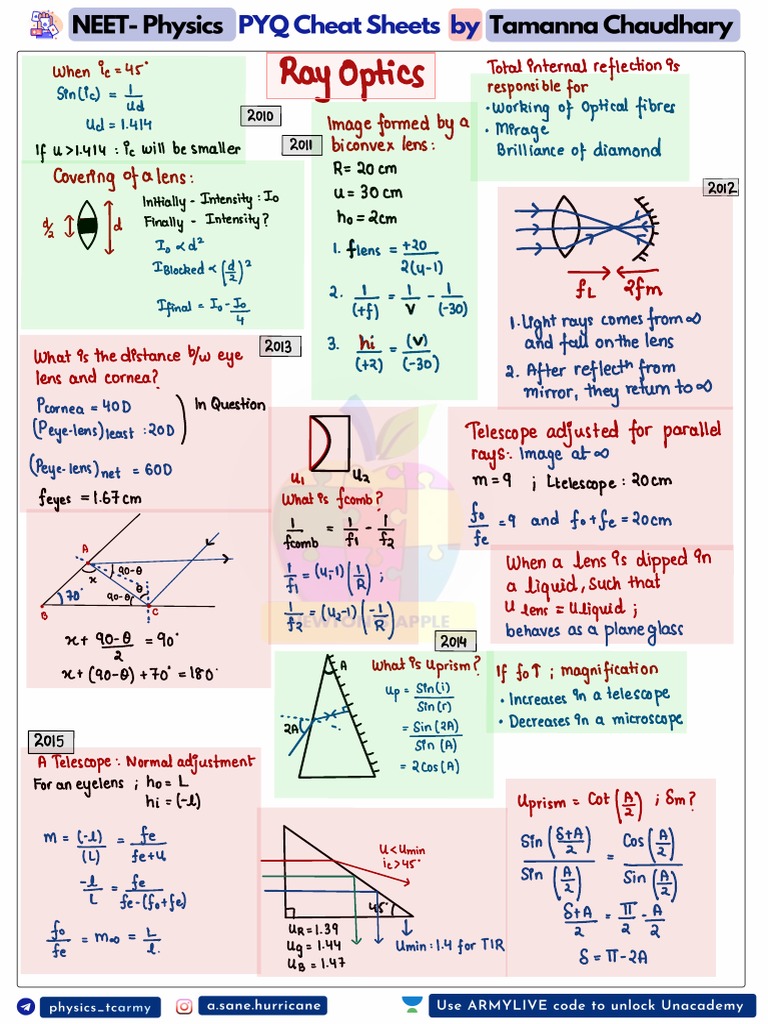 NEET- Physics PYQ Cheat Sheets by Tamanna Chaudhary
Ray Optics
When ic = 45°
Sin(ic) = 1/ud
ud = 1.414
If u > 1.414 : ic will be smaller
2010
Covering of a lens:
Initially - Intensity : I0
Finally - Intensity?
d/2
d
I0 ∝ d²
IBlocked ∝ (d/2)²
Ifinal = I0 - I0/4
2011
Image formed by a
biconvex lens:
R = 20 cm
u = 30 cm
ho = 2cm
1. flens = +20/2(u-1)
2. 1/(+f) = 1/V - 1/(-30)
3. hi/(+2) = (V)/(-30)
Total internal reflection is
responsible for
• Working of Optical fibres
• Mirage
Brilliance of diamond
2012
fL 2fm
1. Light rays comes from ∞
and fall on the lens
2. After reflectn from
mirror, they return to ∞
2013
What is the distance b/w eye
lens and cornea?
Pcornea = 40D
(Peye-lens)least : 20D
In Question
(Peye-lens)net = 60D
feyes = 1.67cm
A
90-θ
x
θ
70°
90-θ
B
C
x + 90-θ/2 = 90°
x + (90-θ) + 70° = 180°
u1
u2
What is fcomb?
1/fcomb = 1/f1 - 1/f2
1/f1 = (u1-1)(1/R) ;
1/f2 = (u2-1)(-1/R)
NEWTON'S APPLE
Telescope adjusted for parallel
rays: Image at ∞
m = 9 ; Ltelescope : 20cm
fo/fe = 9 and fo + fe = 20cm
When a lens is dipped in
a liquid, such that
u lens = u liquid ;
behaves as a plane glass
2014
What is uprism?
A
2A
up = Sin(i)/Sin(r)
= Sin(2A)/Sin(A)
= 2Cos(A)
If fo↑ ; magnification
• Increases in a telescope
• Decreases in a microscope
2015
A Telescope: Normal adjustment
For an eyelens ; ho = L
hi = (-l)
m = (-l)/(L) = fe/fe+u
-l/L = fe/fe-(fo+fe)
fo/fe = m∞ = L/l.
u < umin
ic > 45°
45°
uR = 1.39
ug = 1.44
uB = 1.47
umin : 1.4 for TIR
uprism = Cot(A/2) ; δm?
Sin(δ+A/2)/Sin(A/2) = Cos(A/2)/Sin(A/2)
δ+A/2 = π/2 - A/2
δ = π-2A
physics_tcarmy
a.sane.hurricane
Use ARMYLIVE code to unlock Unacademy